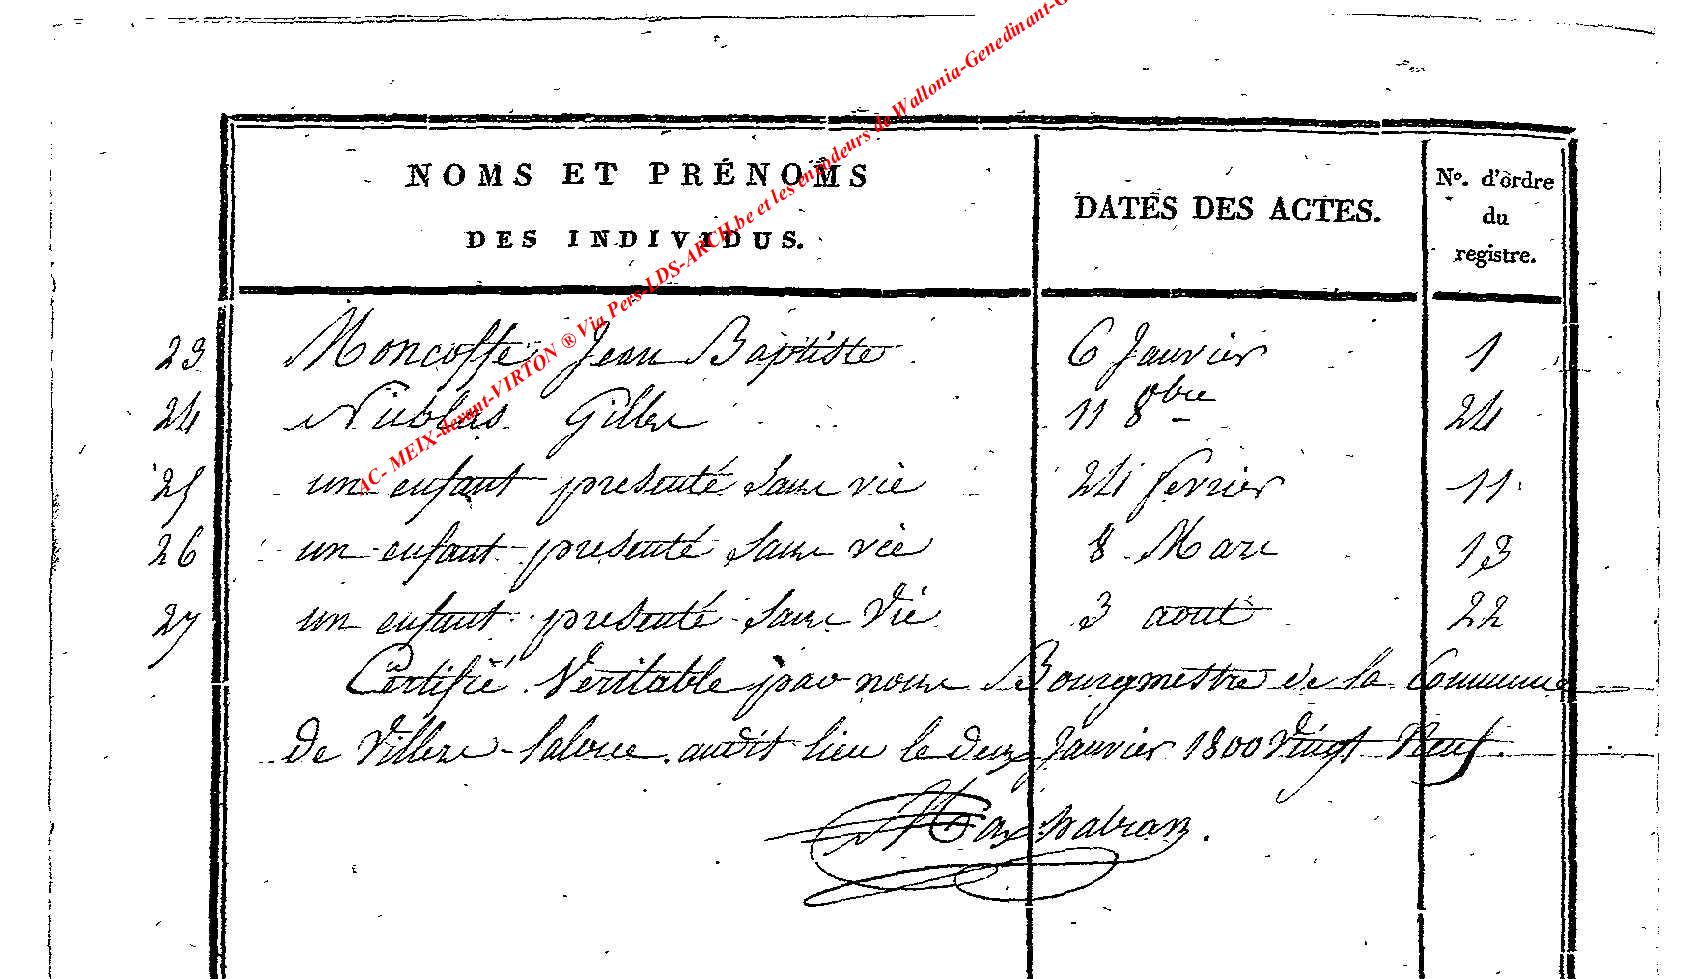 AC- MEIX-devant-VIRTON ® Via Pers-LDS-ARCH.be et les encodeurs de Wallonia-Genedinant-G
NOMS ET PRÉNOMS
DES INDIVIDUS.
DATES DES ACTES.
No. d'ordre
du
registre.
23 Moncoffe Jean Baptiste 6 Janvier 1
24 Nicolas Gilles 11 8bre 24
25 un enfant presenté sans vie 24 fevrier 11
26 un enfant presenté sans vie 8 Mars 13
27 un enfant presenté sans vie 3 aout 22
Certifié Veritable par nous Bourgmestre de la Commune
de Villers-laloue audit lieu le deux Janvier 1800 vingt Neuf.